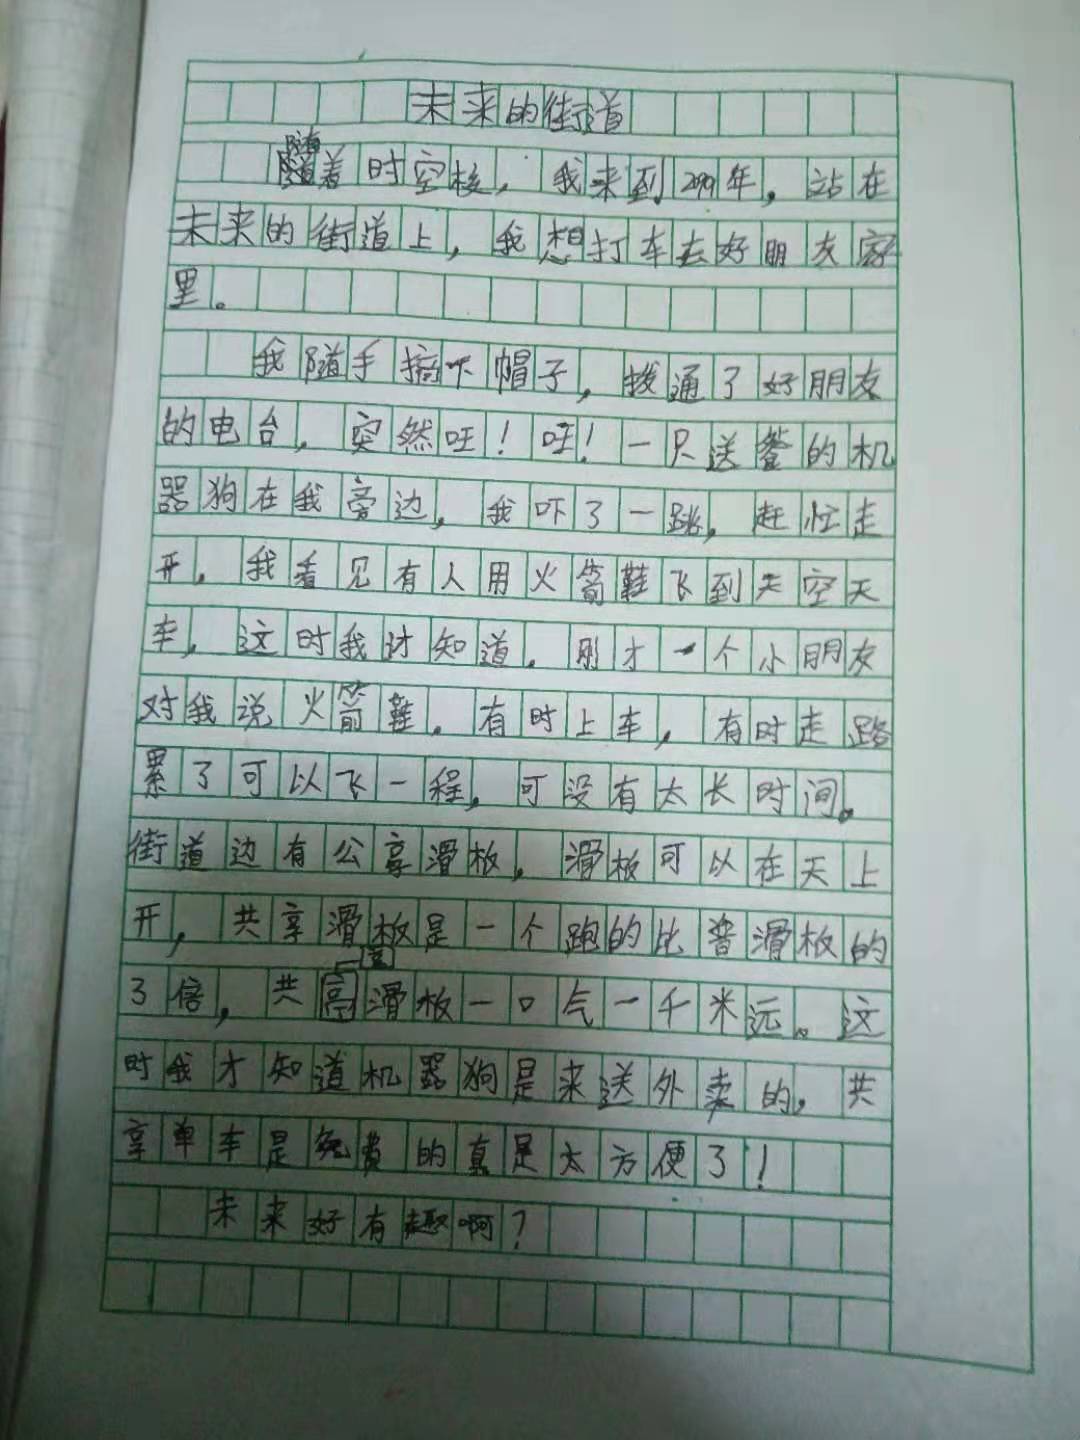 未来的街道
随着时空梭，我来到2099年，站在
未来的街道上，我想打车去好朋友家
里。
我随手摘下帽子，拨通了好朋友
的电台，突然旺！旺！一只送餐的机
器狗在我旁边，我吓了一跳，赶忙走
开，我看见有人用火箭鞋飞到天空天
车，这时我讨知道．刚才一个小朋友
对我说火箭鞋．有时上车，有时走路
累了可以飞一程，可没有太长时间。
街道边有公享滑板，滑板可以在天上
开，共享滑板是一个跑的比普滑板的
3倍，共享滑板一口气一千米远。这
时我才知道机器狗是来送外卖的，共
享单车是免费的真是太方便了！
未来好有趣啊？